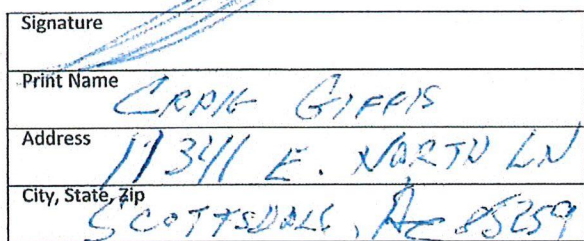 Signature
Print Name
CRAIG GIFFIS
Address
11341 E. NORTH LN
City, State, Zip
SCOTTSDALE, AZ 85259